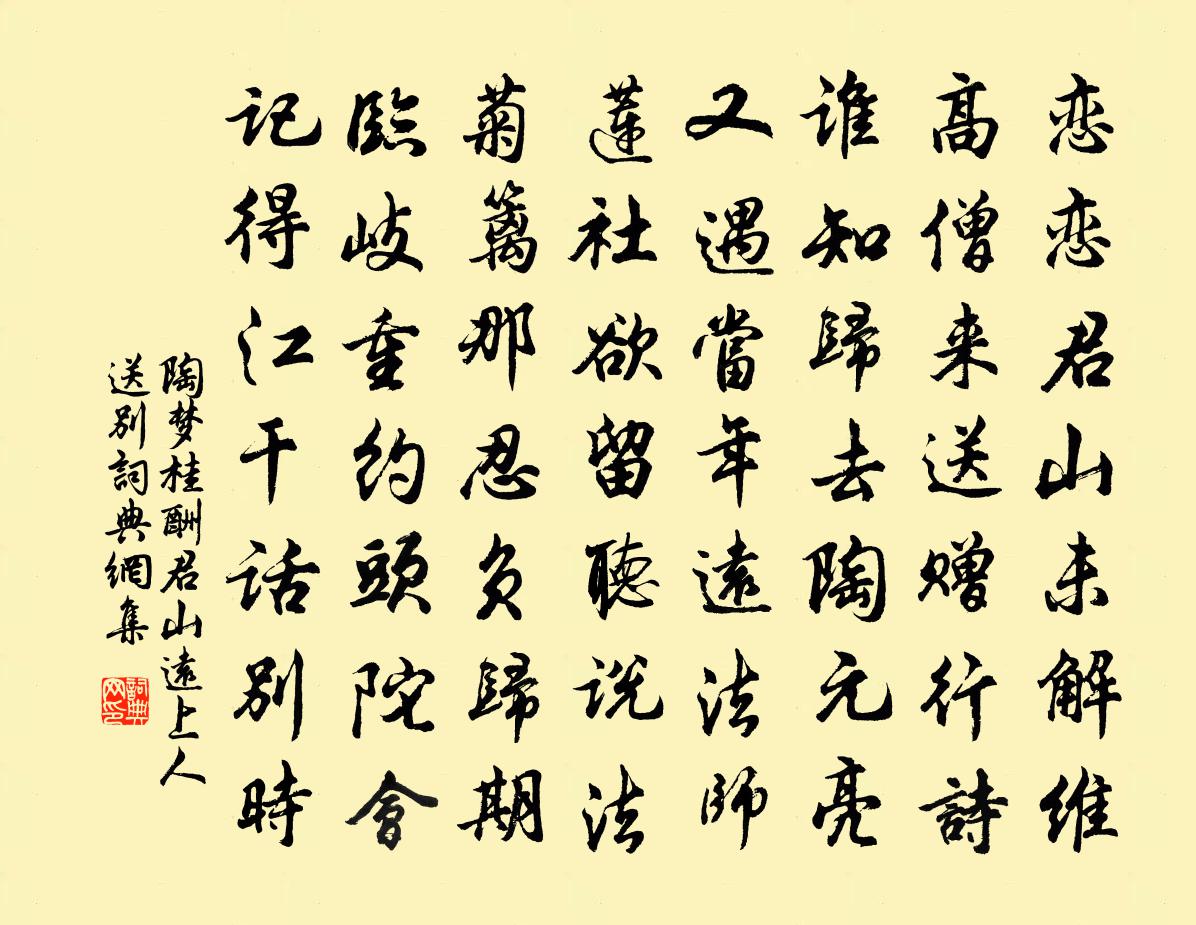 恋恋君山未解维
高僧来送赠行詩
谁知歸去陶元亮
又遇當年遠法師
莲社欲留聽说法
菊篱那忍负歸期
臨岐重约頭陀會
记得江干话别時
陶梦桂酬君山遠上人
送别詞典網集
詞典
网印